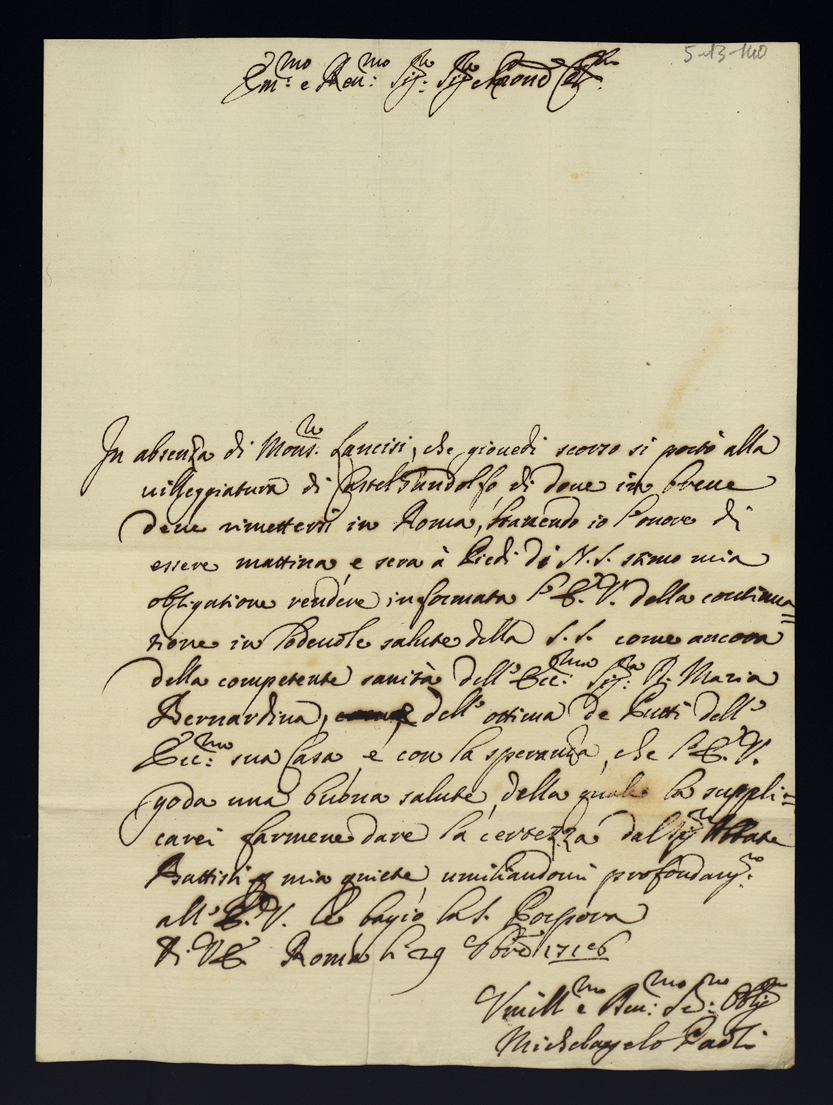 5-13-140
Em:mo e Rev:mo Sig:re Sig:re Padrone Col:mo
In absenza di Mons:re Lancisi, che giovedi scorso si portò alla
villeggiatura di Castel Gandolfo, di dove in breve
deve rimettersi in Roma, havendo io l'onore di
essere mattina, e sera à Piedi di N. S. stimo mia
obligatione rendere informata l'E. V. della continua=
tione in lodevole salute della S. S. come ancora
della competente sanità dell' Ecc:ma Sig:ra D. Maria
Bernardina, dell' ottima de Putti dell'
Ecc:ma sua Casa, e con la speranza, che l'E. V.
goda una buona salute, della quale la suppli=
carei farmene dare la certezza dal Sig:r Abbate
Battisti p mia quiete, umiliandomi profondam:te
all' E. V. le bagio la S. Porpora
Di V E. Roma li 29 1716
Umill:mo e Rev: Se:re Obl:mo
Michelangelo Paoli